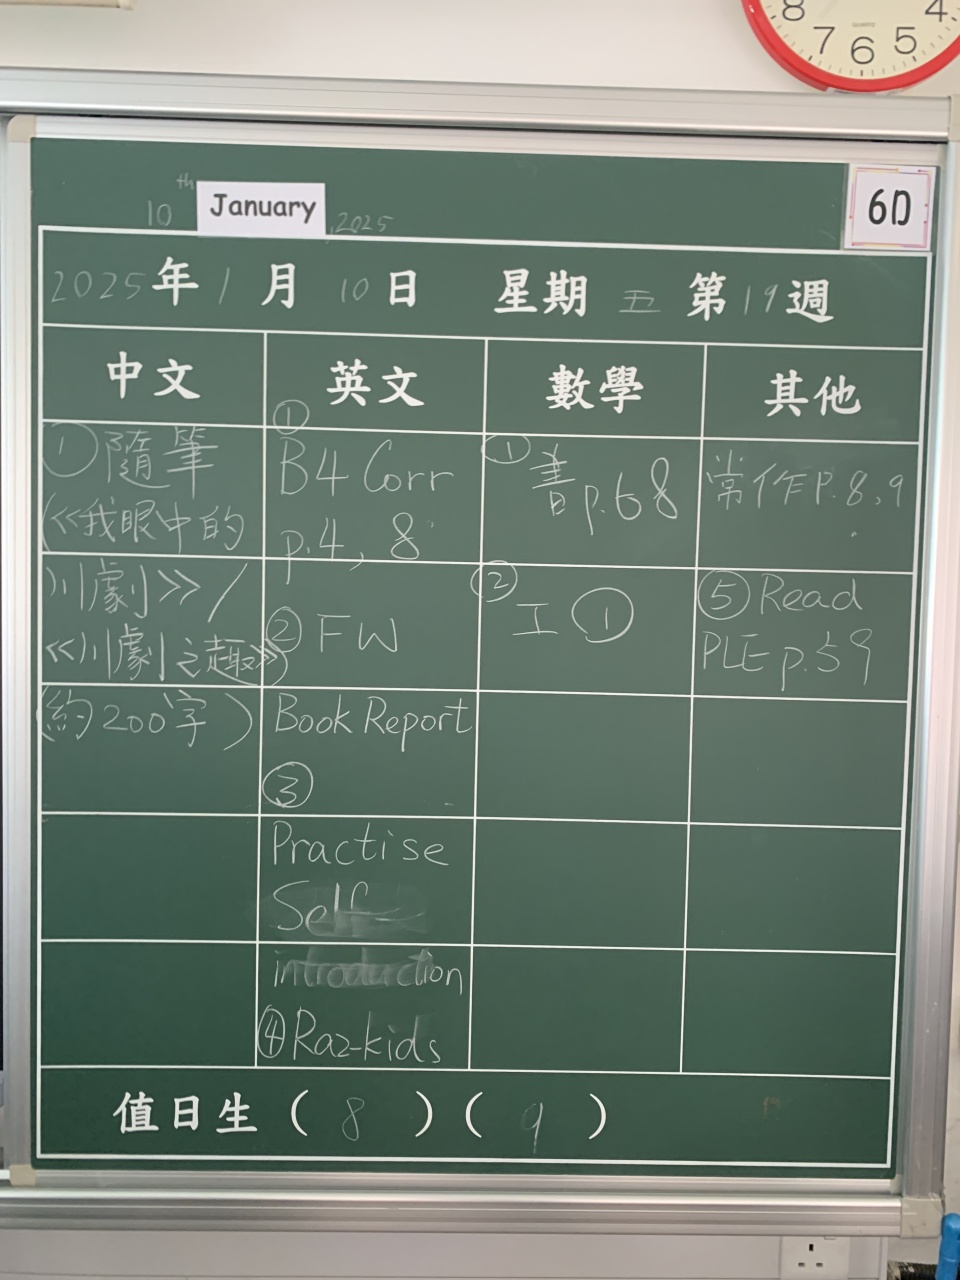 8 7 6 5 4
10th January, 2025
6D
2025年1月10日 星期五 第19週
中文 英文 數學 其他
①隨筆
(《我眼中的
川劇》/
《川劇之趣》
(約200字)
①
B4 Corr
p.4, 8
② FW
Book Report
③
Practise
Self
introduction
④Raz-kids
① 書p.68
② 工①
常作P.8,9
⑤Read
PLE p.59
值日生(8)(9)